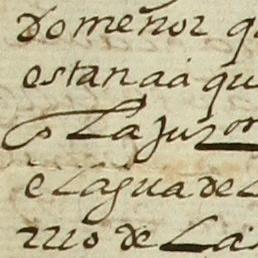 Do menor q
estançia qu
La Jur.on
e Lagua de L
rrio de La